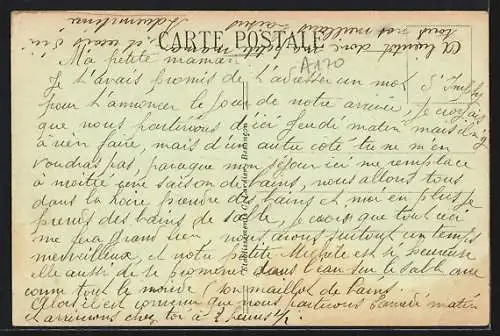 CARTE POSTALE
A bientôt donc
tous nos meilleurs baisers
A120
Ma petite maman
Je t'avais promis de t'adresser un mot
pour t'annoncer le jour de notre arrivée, je croyais
que nous partirions d'ici jeudi matin mais il n'y
a rien faire, mais d'un autre côté tu ne m'en
voudras pas, paraque mon séjour ici me remplace
à moitié une saison de bains, nous allons tous
dans la Loire prendre des bains et moi en plus je
prends des bains de sable, je crois que tout ceci
me fera grand bien, nous avons surtout un temps
merveilleux, et notre petite est si heureuse
elle aussi de se promener dans l'eau sur le sable avec
comme tout le monde (son maillot de bains.
Alors il est convenu que nous partirons Samedi matin
et arriverons chez toi à 2 heures 1/2
Etablissements C. Lardier, Besançon